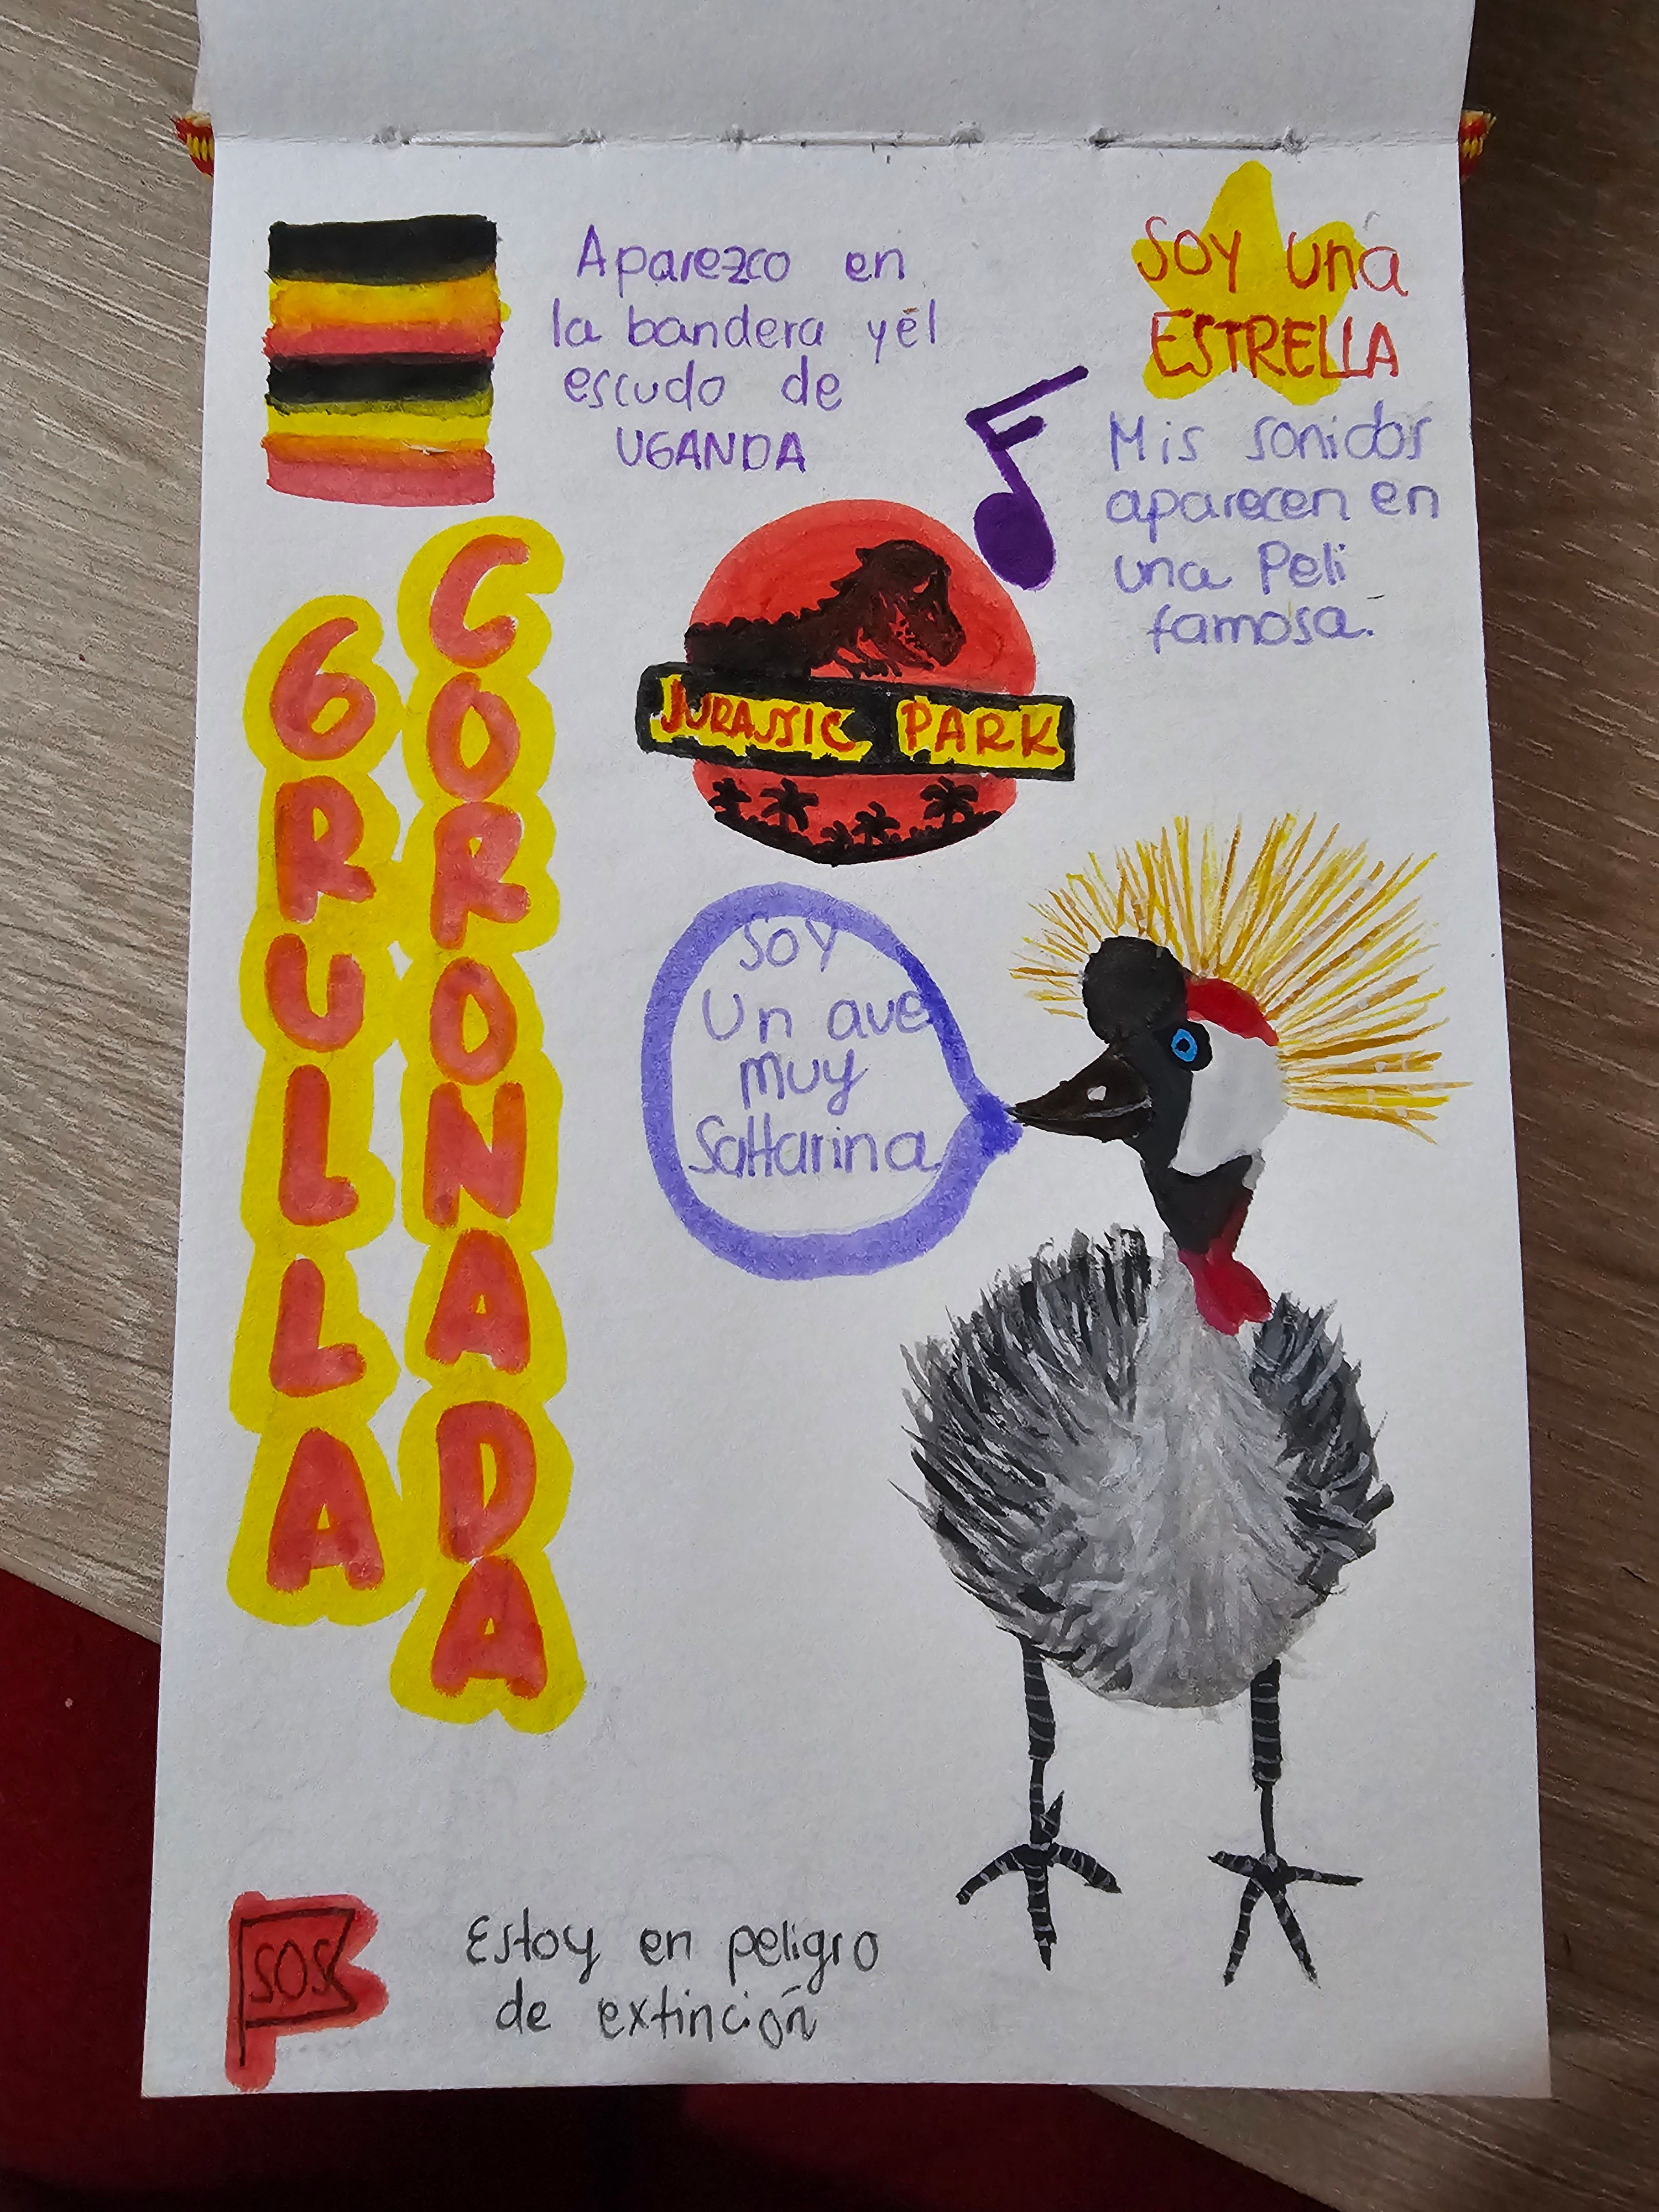 Aparezco en
la bandera y él
escudo de
UGANDA
Soy una
ESTRELLA
Mis sonidos
aparecen en
una Peli
famosa.
JURASSIC PARK
GRULLA
CORONADA
SOY
Un ave
muy
Saltarina
SOS
Estoy en peligro
de extinción